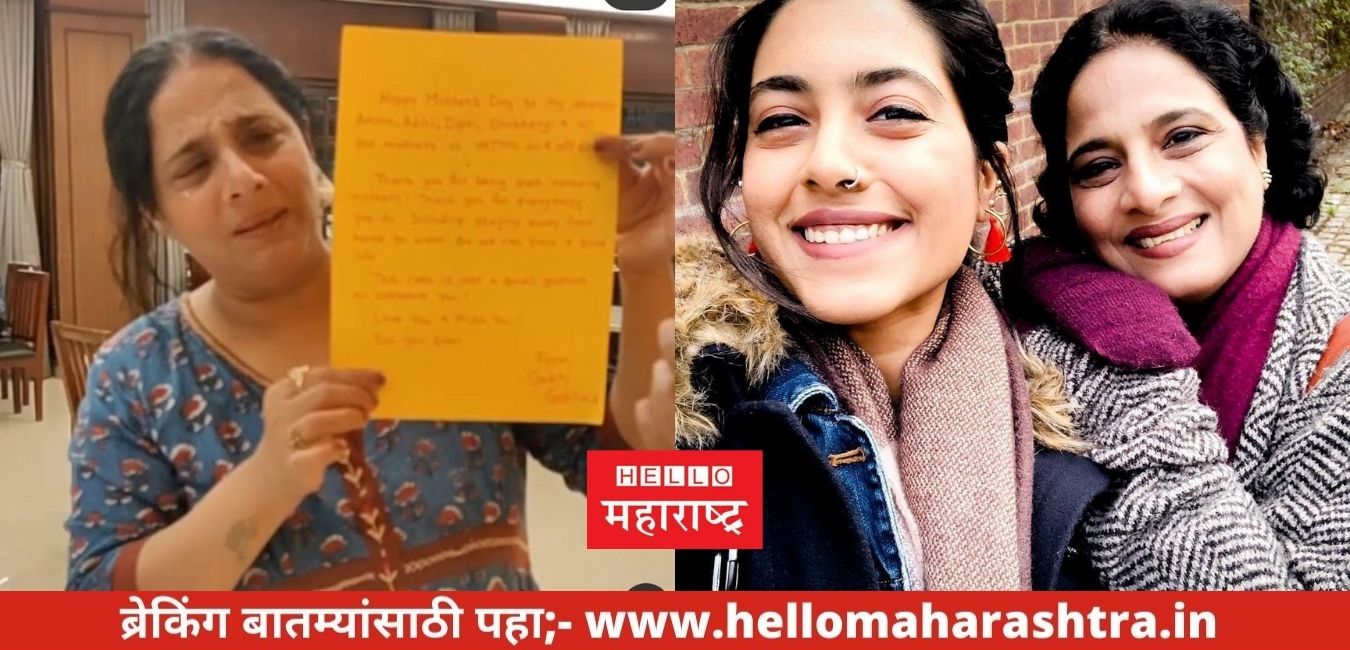 Happy Mother's Day to my
Aamma, Aditi, Dipti, Shubhangi & all
the mothers
Thank you for being such amazing
mothers! Thank you for everything
you do. Including staying away from
home to work. So we can have a good
life
This cake is just a small gesture
Love You & Miss You!
See you soon
From
Sakhi
Gokhale
HELLO
महाराष्ट्र
ब्रेकिंग बातम्यांसाठी पहा;- www.hellomaharashtra.in